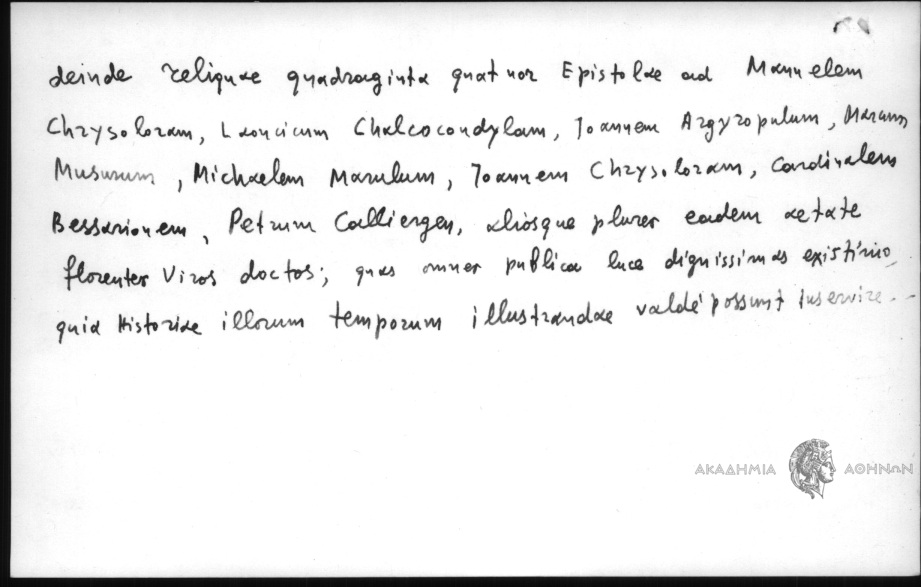 deinde reliquae quadraginta quatuor Epistolae ad Manuelem
Chrysoloram, Laonicum Chalcocondylam, Joannem Argyropulum, Marcum
Musurum, Michaelem Marulum, Joannem Chrysoloram, Cardinalem
Bessarionem, Petrum Calliergen, aliosque plures eadem aetate
florentes Viros doctos; quas omnes publica luce dignissimas existimo,
quia Historiae illorum temporum illustrandae valdè possunt inservire...
ΑΚΑΔΗΜΙΑ ΑΘΗΝΩΝ